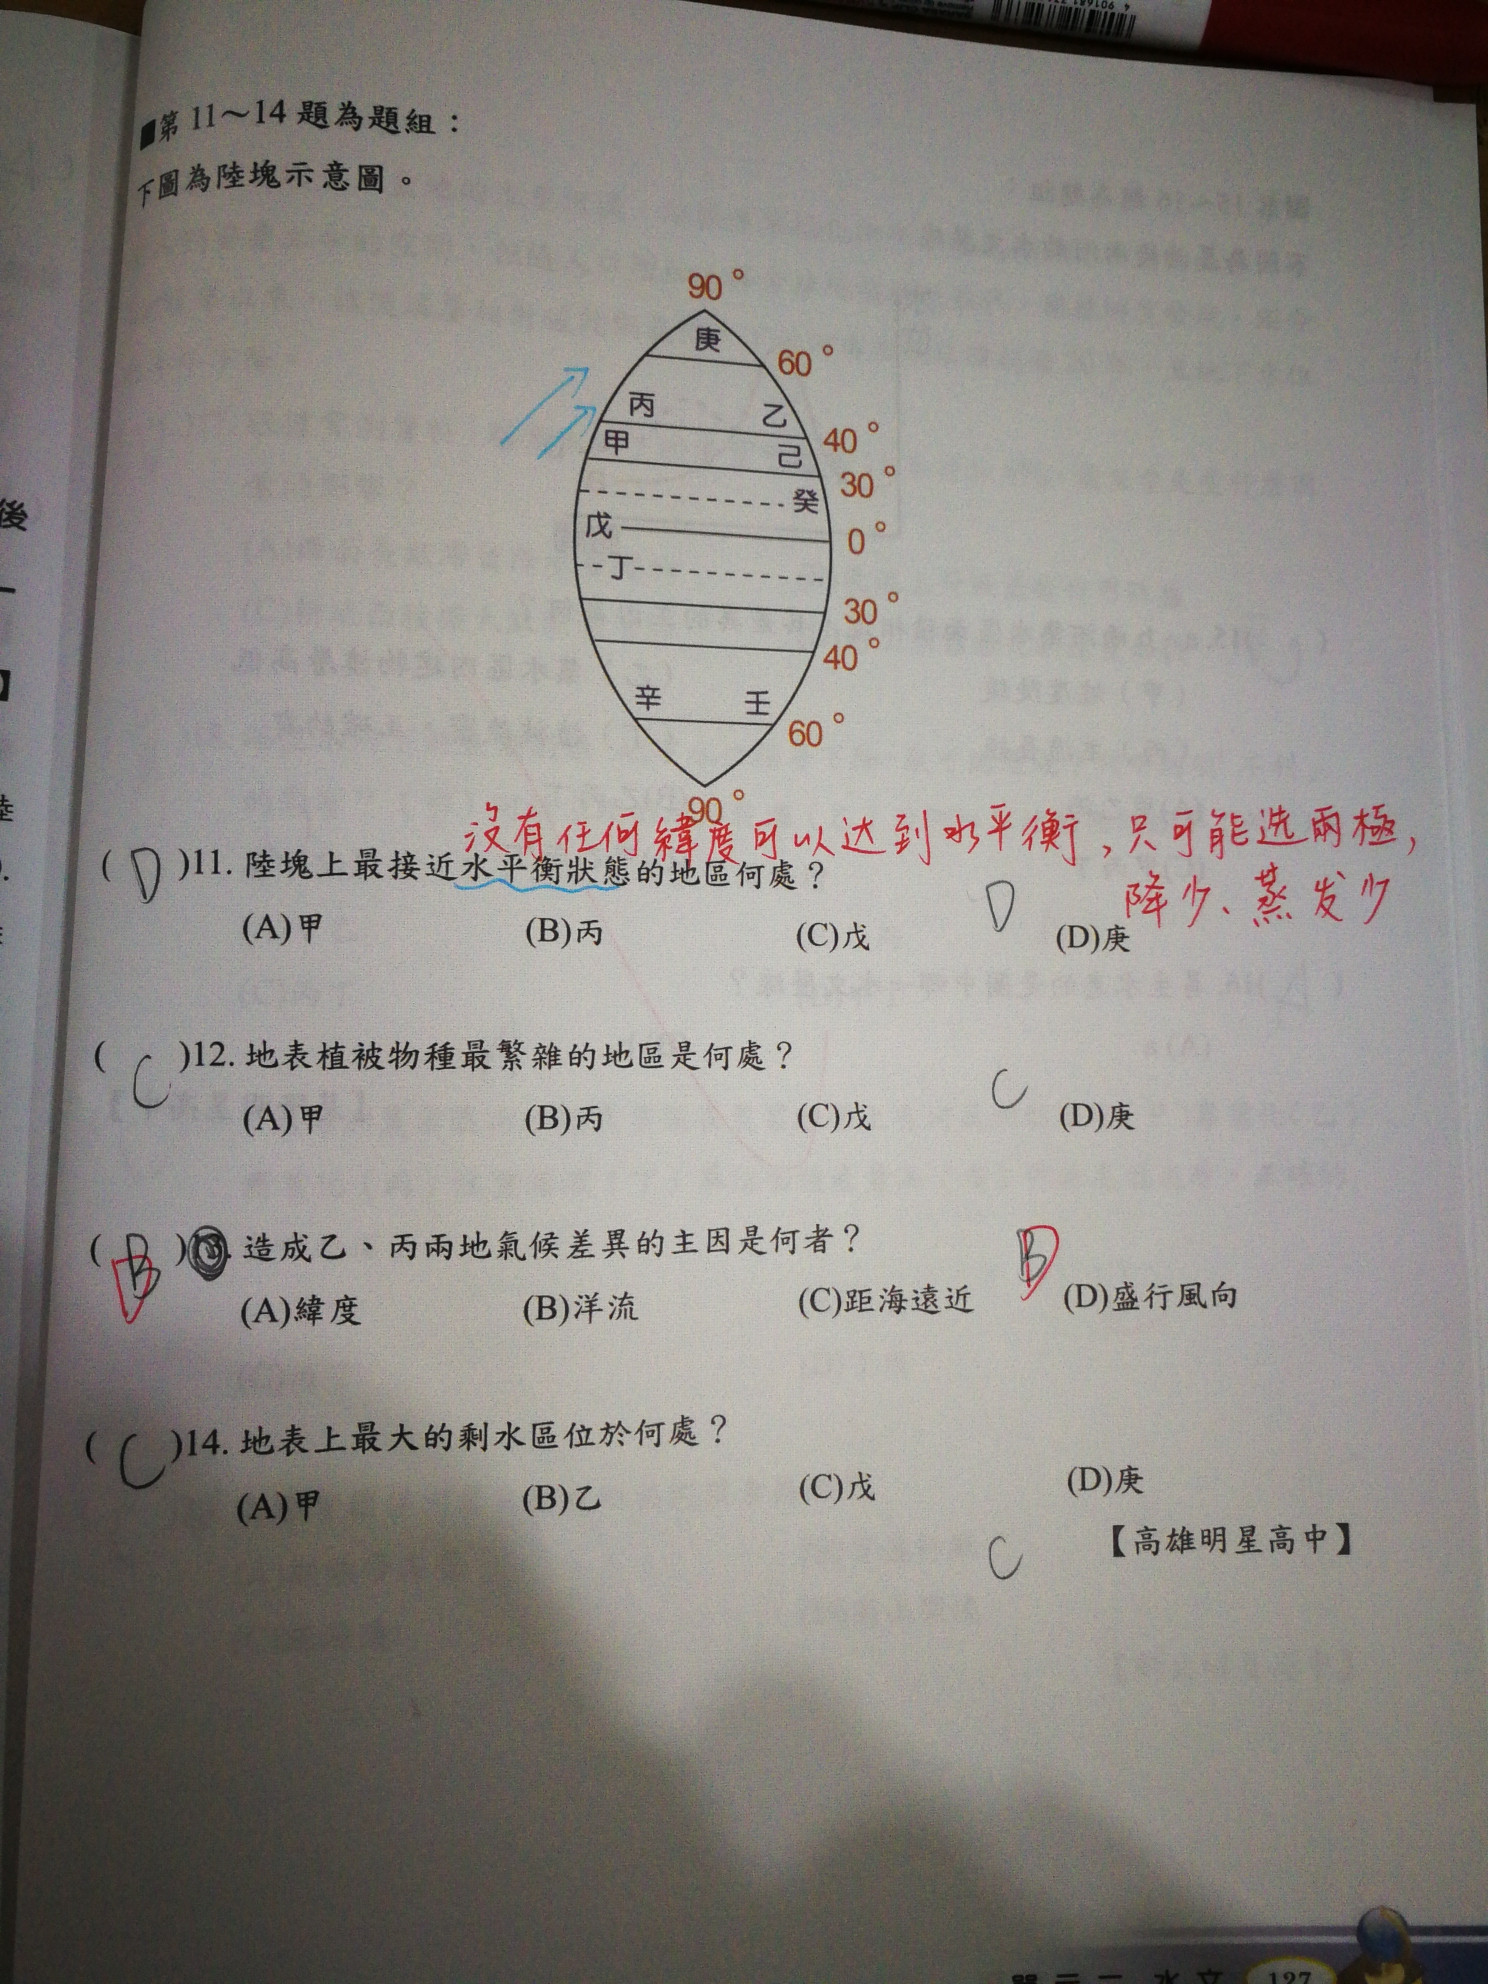 ■第 11～14 題為題組：
下圖為陸塊示意圖。
90°
庚
60°
丙 乙
40°
甲 己
30°
癸
戊
0°
丁
30°
40°
辛 壬
60°
90°
沒有任何緯度可以达到水平衡，只可能选兩極，
降少、蒸发少
( D )11. 陸塊上最接近水平衡狀態的地區何處？
D
(A)甲 (B)丙 (C)戊 (D)庚
( C )12. 地表植被物種最繁雜的地區是何處？
C
(A)甲 (B)丙 (C)戊 (D)庚
( B D )13. 造成乙、丙兩地氣候差異的主因是何者？
B D
(A)緯度 (B)洋流 (C)距海遠近 (D)盛行風向
( C )14. 地表上最大的剩水區位於何處？
(A)甲 (B)乙 (C)戊 (D)庚
C
【高雄明星高中】
單元二 水文 127
後